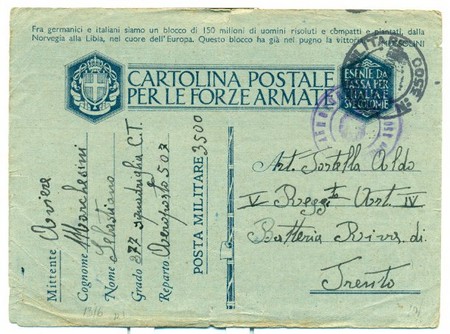 Fra germanici e italiani siamo un blocco di 150 milioni di uomini risoluti e compatti e piantati, dalla
Norvegia alla Libia, nel cuore dell'Europa. Questo blocco ha già nel pugno la vittoria. MUSSOLINI
CARTOLINA POSTALE
PER LE FORZE ARMATE
ESENTE DA
TASSA PER
L'ITALIA E
SUE COLONIE
Mittente Aviere
Cognome Marchesini
Nome Sebastiano
Grado 377 squadriglia C.T.
Reparto Aeroporto 503
POSTA MILITARE 3500
Art. Tortella Aldo
V Regg.to Art. IV
Batteria Riva di
Trento